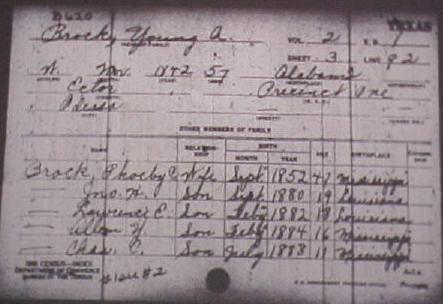 B620 TEXAS
Brock, Young A. VOL. 2 E.D. 1
SHEET 3 LINE 92
W. Mr. 1842 57 Alabama
Ector Precinct One
Odessa
OTHER MEMBERS OF FAMILY
NAME RELATION-SHIP BIRTH MONTH YEAR AGE BIRTHPLACE
Brock, Phoeby C. Wife Sept. 1852 47 Mississippi
— Jno. H. Son Sept. 1880 19 Louisiana
— Lawrence E. Son Feby 1882 18 Louisiana
— Son Feby 1884 16 Mississippi
— Chas. C. Son July 1888 11 Mississippi
1900 CENSUS—INDEX
DEPARTMENT OF COMMERCE
BUREAU OF THE CENSUS